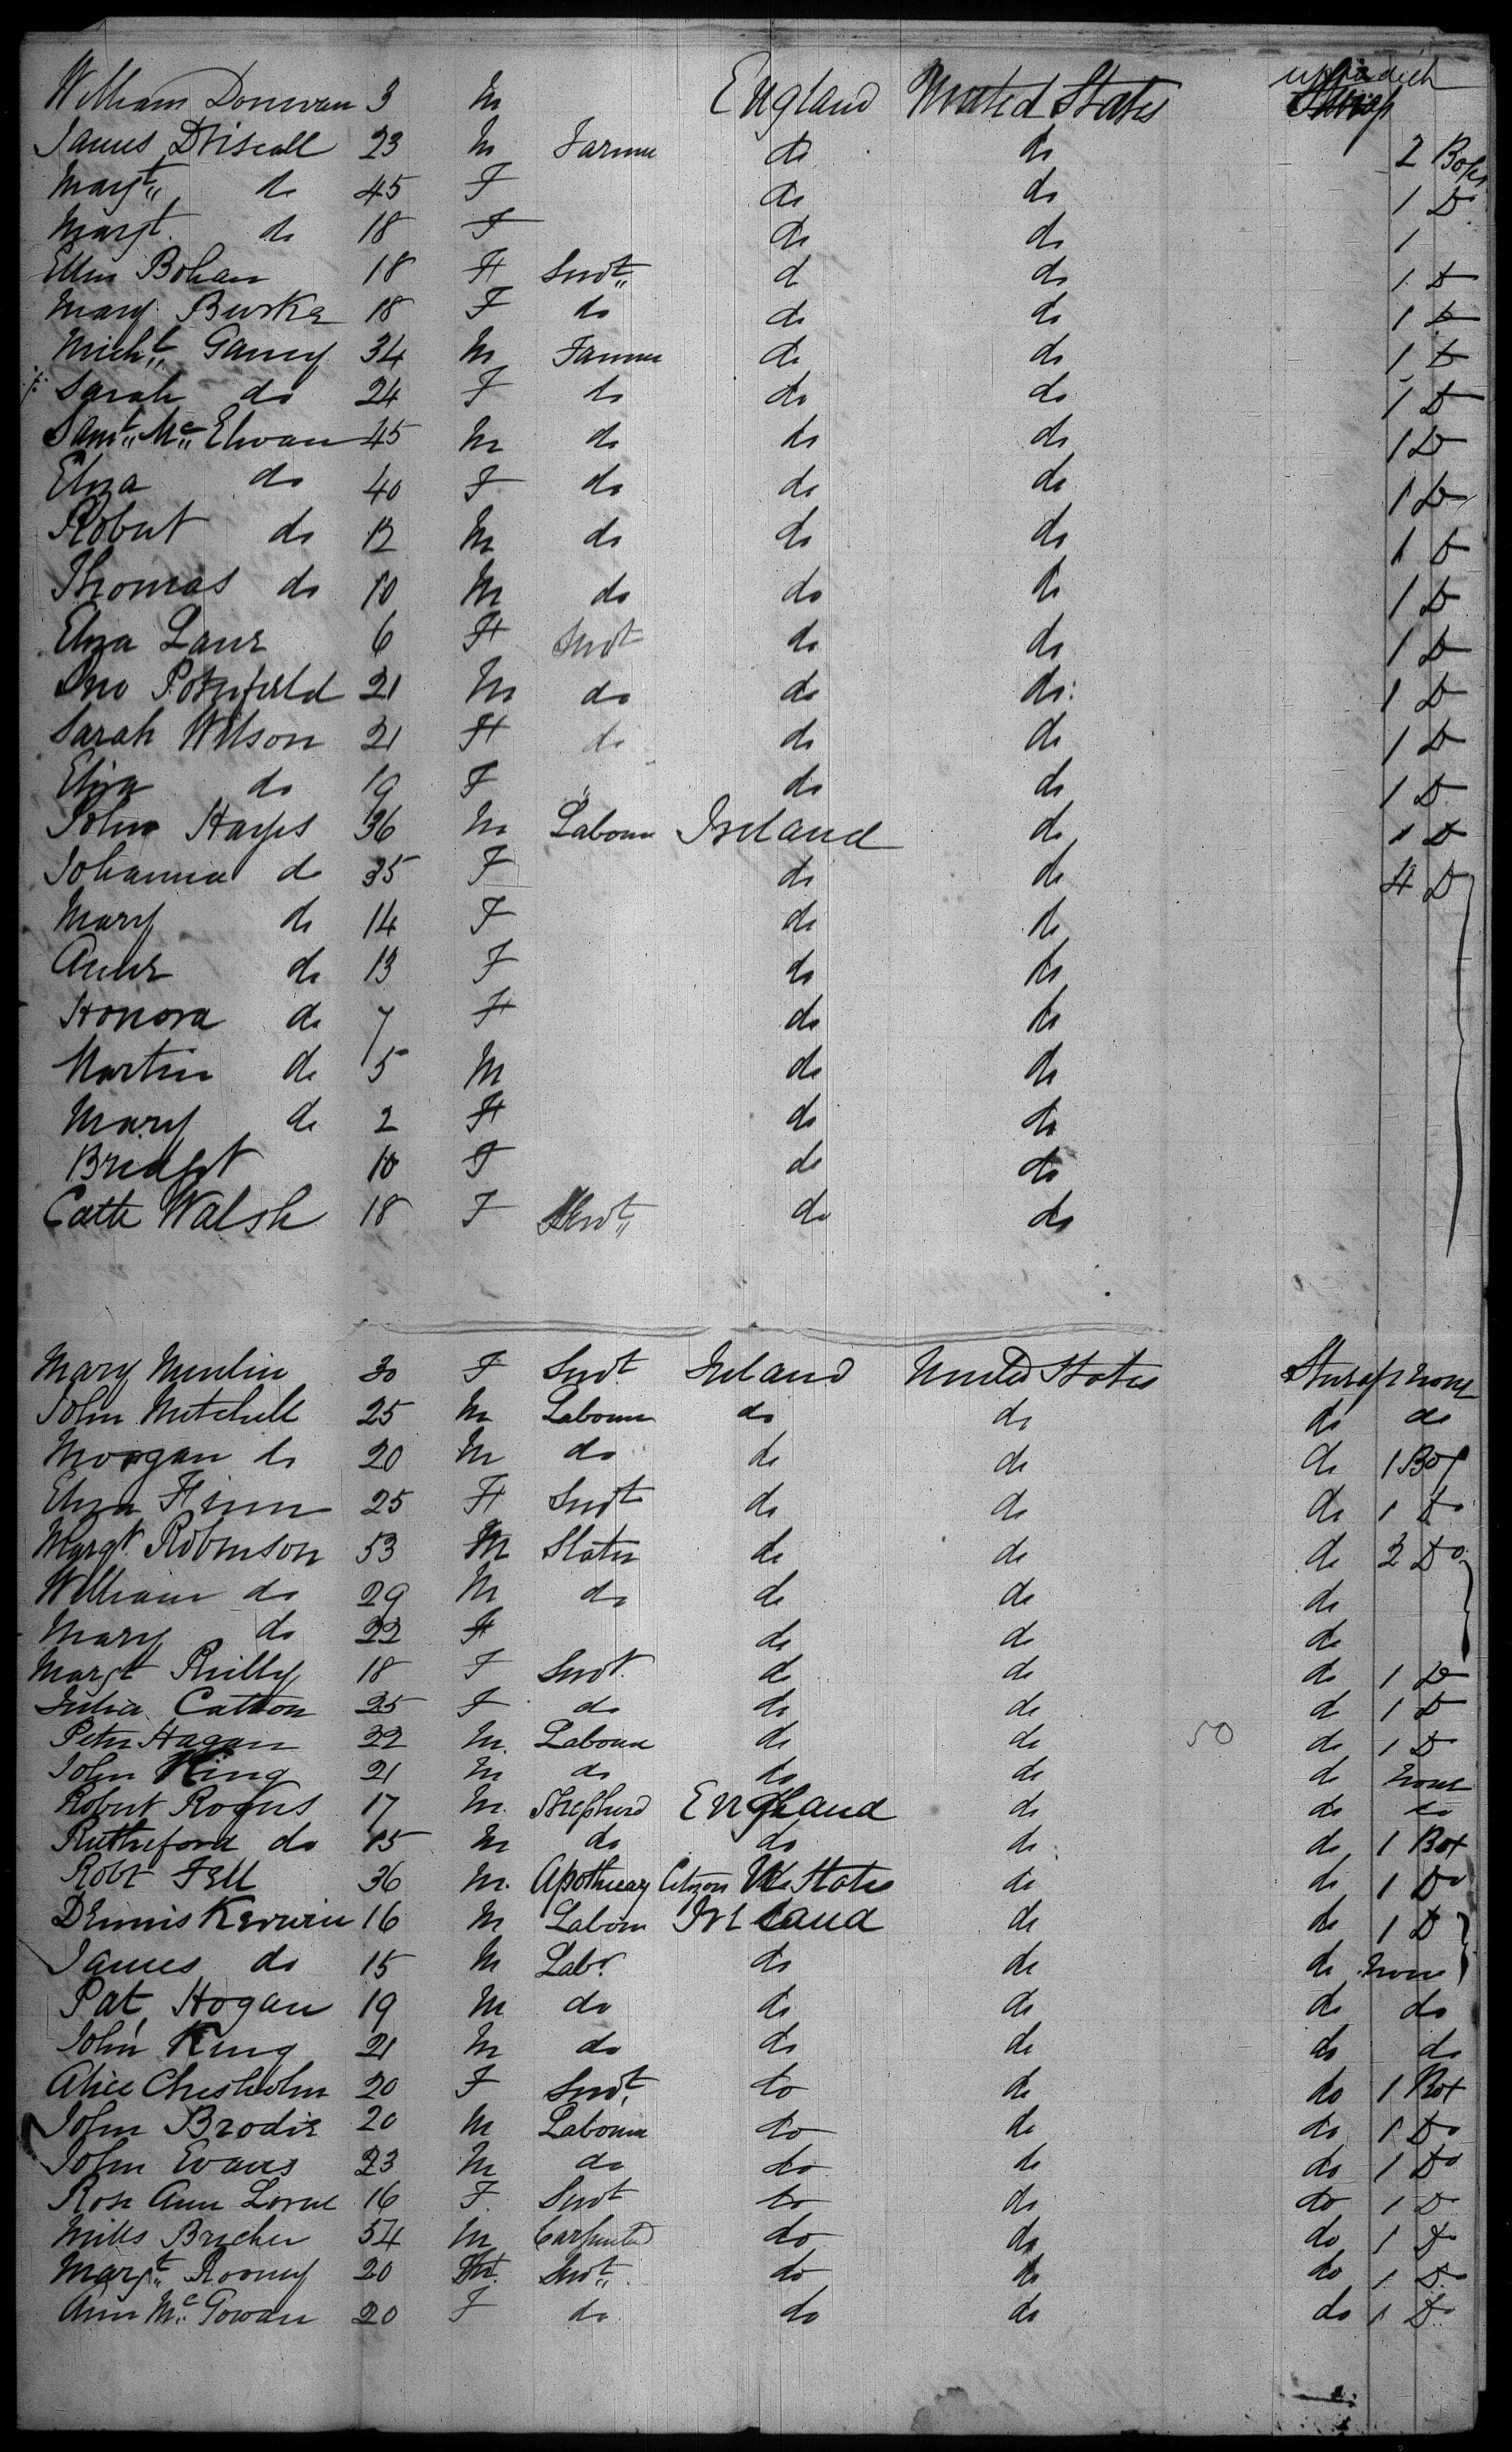 William Donovan 3 M England United States upper deck
James Driscoll 23 M Farmer do do 2 Boxes
Margt do 45 F do do 1 Do
Margt do 18 F do do 1
Ellen Bohan 18 F Servt d do 1 Do
Mary Burke 18 F do do do 1 Do
Michl Garvey 34 M Farmer do do 1 Do
Sarah do 24 F do do do 1 Do
Saml Mc Elwan 45 M do do do 1 Do
Eliza do 40 F do do do 1 Do
Robert do 12 M do do do 1 Do
Thomas do 10 M do do do 1 Do
Eliza Lane 6 F Servt do do 1 Do
Jno 21 M do do do 1 Do
Sarah Wilson 21 F do do do 1 Do
Eliza do 19 F " do do 1 Do
John Hayes 36 M Labourer Ireland do 1 Do
Johanna do 35 F do do 4 Do
Mary do 14 F do do
Anne do 13 F do do
Honora do 7 F do do
Martin do 5 M do do
Mary do 2 F do do
Bridget 10 F do do
Cathe Walsh 18 F Servt do do
Mary 30 F Servt Ireland United States Steerage none
John Mitchell 25 M Labourer do do do do
Morgan do 20 M do do do do 1 Box
Eliza Finn 25 F Servt do do do 1 Do
Margt Robinson 53 M Slater do do do 2 Do
William do 29 M do do do do
Mary do 22 F do do do
Margt Reilly 18 F Servt do do do 1 Do
Julia Catton 25 F do do do do 1 Do
Peter Hagan 22 M Labourer do do 50 do 1 Do
John King 21 M do do do do none
Robert Rogers 17 M Shepherd England do do do
Rutheford do 15 M do do do do 1 Box
Robt Fell 36 M Apothecary Citizen U States do do 1 Do
Dennis Kerwin 16 M Labourer Ireland do do 1 Do
James do 15 M Labr do do do none
Pat Hogan 19 M do do do do do
John King 21 M do do do do do
Alice Chesholm 20 F Servt do do do 1 Box
John Brodie 20 M Labourer do do do 1 Do
John Evans 23 M do do do do 1 Do
Rose Ann Lorne 16 F Servt do do do 1 Do
Miles 54 M Carpenter do do do 1 Do
Margt Rooney 20 Servt do do do 1 Do
Ann Mc Gowan 20 F do do do do 1 Do